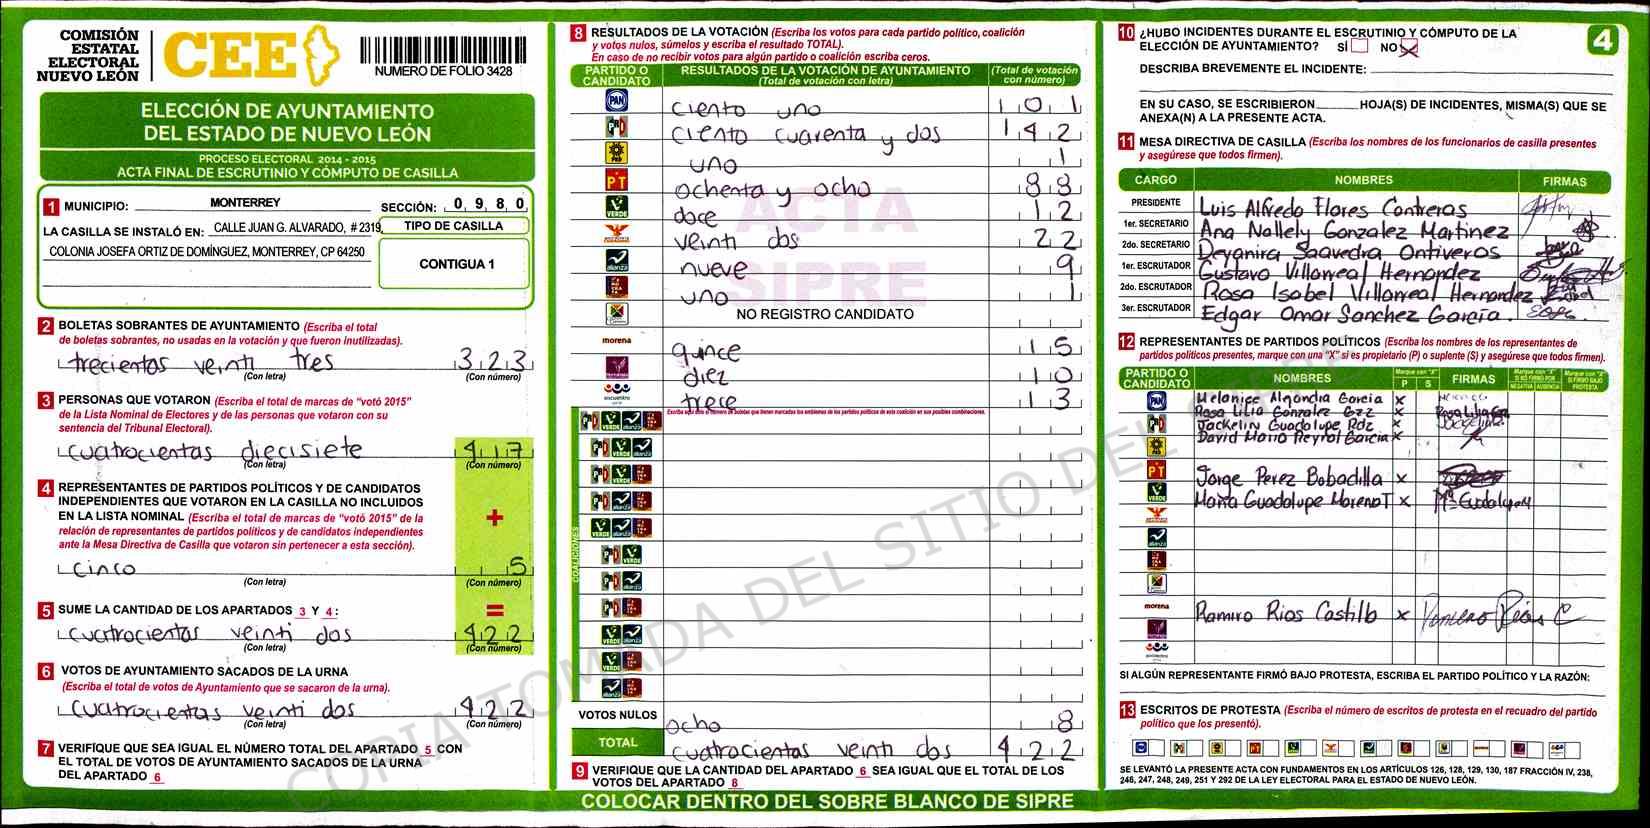 COMISIÓN
ESTATAL
ELECTORAL
NUEVO LEÓN
CEE
NUMERO DE FOLIO 3428
ELECCIÓN DE AYUNTAMIENTO
DEL ESTADO DE NUEVO LEÓN
PROCESO ELECTORAL 2014 - 2015
ACTA FINAL DE ESCRUTINIO Y CÓMPUTO DE CASILLA
1 MUNICIPIO: MONTERREY SECCIÓN: 0 9 8 0
LA CASILLA SE INSTALÓ EN: CALLE JUAN G. ALVARADO, # 2319,
COLONIA JOSEFA ORTIZ DE DOMÍNGUEZ, MONTERREY, CP 64250
TIPO DE CASILLA
CONTIGUA 1
2 BOLETAS SOBRANTES DE AYUNTAMIENTO (Escriba el total
de boletas sobrantes, no usadas en la votación y que fueron inutilizadas).
trecientas veinti tres 3 2 3
(Con letra) (Con número)
3 PERSONAS QUE VOTARON (Escriba el total de marcas de “votó 2015”
de la Lista Nominal de Electores y de las personas que votaron con su
sentencia del Tribunal Electoral).
cuatrocientas diecisiete 4 1 7
(Con letra) (Con número)
4 REPRESENTANTES DE PARTIDOS POLÍTICOS Y DE CANDIDATOS
INDEPENDIENTES QUE VOTARON EN LA CASILLA NO INCLUIDOS
EN LA LISTA NOMINAL (Escriba el total de marcas de “votó 2015” de la
relación de representantes de partidos políticos y de candidatos independientes
ante la Mesa Directiva de Casilla que votaron sin pertenecer a esta sección).
+
cinco 5
(Con letra) (Con número)
5 SUME LA CANTIDAD DE LOS APARTADOS 3 Y 4: =
cuatrocientas veinti dos 4 2 2
(Con letra) (Con número)
6 VOTOS DE AYUNTAMIENTO SACADOS DE LA URNA
(Escriba el total de votos de Ayuntamiento que se sacaron de la urna).
cuatrocientas veinti dos 4 2 2
(Con letra) (Con número)
7 VERIFÍQUE QUE SEA IGUAL EL NÚMERO TOTAL DEL APARTADO 5 CON
EL TOTAL DE VOTOS DE AYUNTAMIENTO SACADOS DE LA URNA
DEL APARTADO 6
8 RESULTADOS DE LA VOTACIÓN (Escriba los votos para cada partido político, coalición
y votos nulos, súmelos y escriba el resultado TOTAL).
En caso de no recibir votos para algún partido o coalición escriba ceros.
PARTIDO O CANDIDATO RESULTADOS DE LA VOTACIÓN DE AYUNTAMIENTO (Total de votación con letra) (Total de votación con número)
PAN ciento uno 1 0 1
PRD ciento cuarenta y dos 1 4 2
PRD uno 1
PT ochenta y ocho 8 8
VERDE doce 1 2
veinti dos 2 2
alianza nueve 9
uno 1
NO REGISTRO CANDIDATO
morena quince 1 5
diez 1 0
encuentro trece 1 3
COALICIONES
VOTOS NULOS ocho 8
TOTAL cuatrocientas veinti dos 4 2 2
ACTA
SIPRE
9 VERIFIQUE QUE LA CANTIDAD DEL APARTADO 6 SEA IGUAL QUE EL TOTAL DE LOS
VOTOS DEL APARTADO 8
COLOCAR DENTRO DEL SOBRE BLANCO DE SIPRE
10 ¿HUBO INCIDENTES DURANTE EL ESCRUTINIO Y CÓMPUTO DE LA
ELECCIÓN DE AYUNTAMIENTO? SÍ NO X
4
DESCRIBA BREVEMENTE EL INCIDENTE:
EN SU CASO, SE ESCRIBIERON HOJA(S) DE INCIDENTES, MISMA(S) QUE SE
ANEXA(N) A LA PRESENTE ACTA.
11 MESA DIRECTIVA DE CASILLA (Escriba los nombres de los funcionarios de casilla presentes
y asegúrese que todos firmen).
CARGO NOMBRES FIRMAS
PRESIDENTE Luis Alfredo Flores Contreras
1er. SECRETARIO Ana Nallely Gonzalez Martinez
2do. SECRETARIO Deyanira Saavedra Ontiveros
1er. ESCRUTADOR Gustavo Villarreal Hernandez
2do. ESCRUTADOR Rosa Isabel Villarreal Hernandez
3er. ESCRUTADOR Edgar Omar Sanchez García.
12 REPRESENTANTES DE PARTIDOS POLÍTICOS (Escriba los nombres de los representantes de
partidos políticos presentes, marque con "X" si es propietario (P) o suplente (S) y asegúrese que todos firmen).
PARTIDO O CANDIDATO NOMBRES Marque con "X" P S FIRMAS
PAN Garcia x
Rosa Lilia Gonzalez Gzz x
Jackelin Guadalupe Rdz x
David Mario Garcia x
PT Jorge Perez Bobadilla x
VERDE Maria Guadalupe Moreno T x
alianza
morena Ramiro Rios Castillo x
SI ALGÚN REPRESENTANTE FIRMÓ BAJO PROTESTA, ESCRIBA EL PARTIDO POLÍTICO Y LA RAZÓN:
13 ESCRITOS DE PROTESTA (Escriba el número de escritos de protesta en el recuadro del partido
político que los presentó).
SE LEVANTÓ LA PRESENTE ACTA CON FUNDAMENTOS EN LOS ARTÍCULOS 126, 128, 129, 130, 187 FRACCIÓN IV, 238,
246, 247, 248, 249, 251 Y 292 DE LA LEY ELECTORAL PARA EL ESTADO DE NUEVO LEÓN.